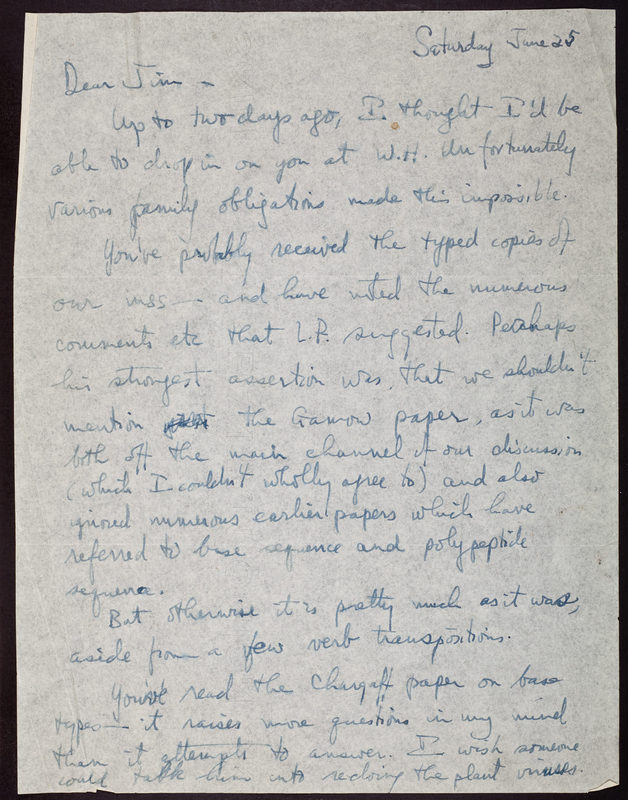 Saturday June 25
Dear Jim -
Up to two days ago, I thought I'd be
able to drop in on you at W.H. Unfortunately
various family obligations made this impossible.
You've probably received the typed copies of
our mss — and have noted the numerous
comments etc that L.P. suggested. Perhaps
his strongest assertion was, that we shouldn't
mention the Gamow paper, as it was
both off the main channel of our discussion
(which I couldn't wholly agree to) and also
ignored numerous earlier papers which have
referred to base sequence and polypeptide
sequence.
But otherwise it is pretty much as it was,
aside from a few verb transpositions.
You've read the Chargaff paper on base
types — it raises more questions in my mind
than it attempts to answer. I wish someone
could talk him into redoing the plant viruses.